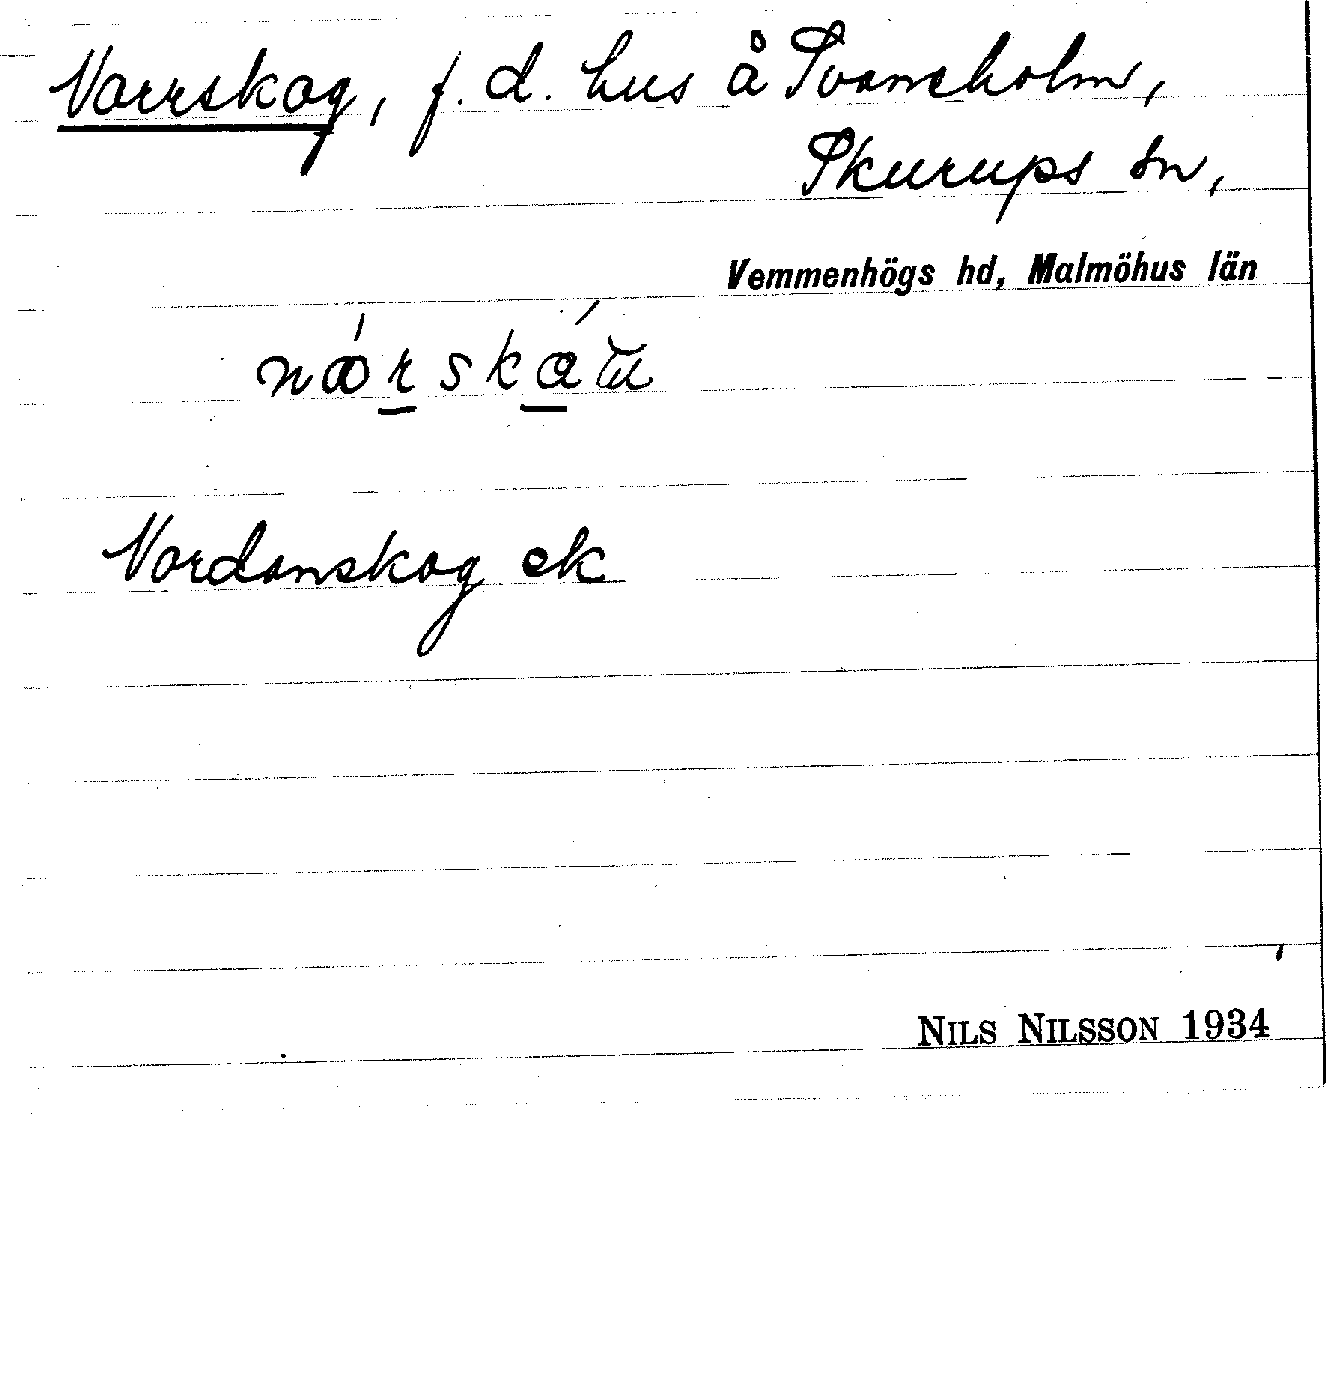 Norrskog, f. d. hus å Svaneholm,
Skurups sn,
Vemmenhögs hd, Malmöhus län
Nordanskog ek
NILS NILSSON 1934